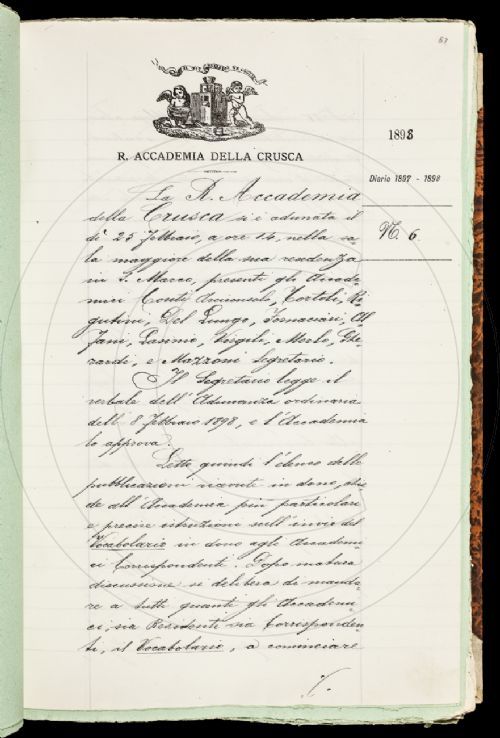 67
R. ACCADEMIA DELLA CRUSCA
1898
Diario 1897 - 1898
N. 6
La R. Accademia
della Crusca si è adunata il
dì 25 febbraio, a ore 14, nella sa=
la maggiore della sua residenza
in S. Marco, presenti gli Accade=
mici Conti, Tortoli, Ri=
gutini, Del Lungo, Tornaciari, Al=
fani, Virgili, Merlo, Ghe=
rardi, e Mazzoni segretario.
Il Segretario legge il
verbale dell'Adunanza ordinaria
dell' 8 febbraio 1898, e l'Accademia
lo approva.
Letto quindi l'elenco delle
pubblicazioni ricevute in dono, chie=
de all'Accademia più particolari
e precise istruzioni sull'invio del
Vocabolario in dono agli Accademi=
ci Corrispondenti. Dopo matura
discussione si delibera di manda=
re a tutti quanti gli Accademi=
ci, sia Residenti sia Corrisponden=
ti, il Vocabolario, a cominciare